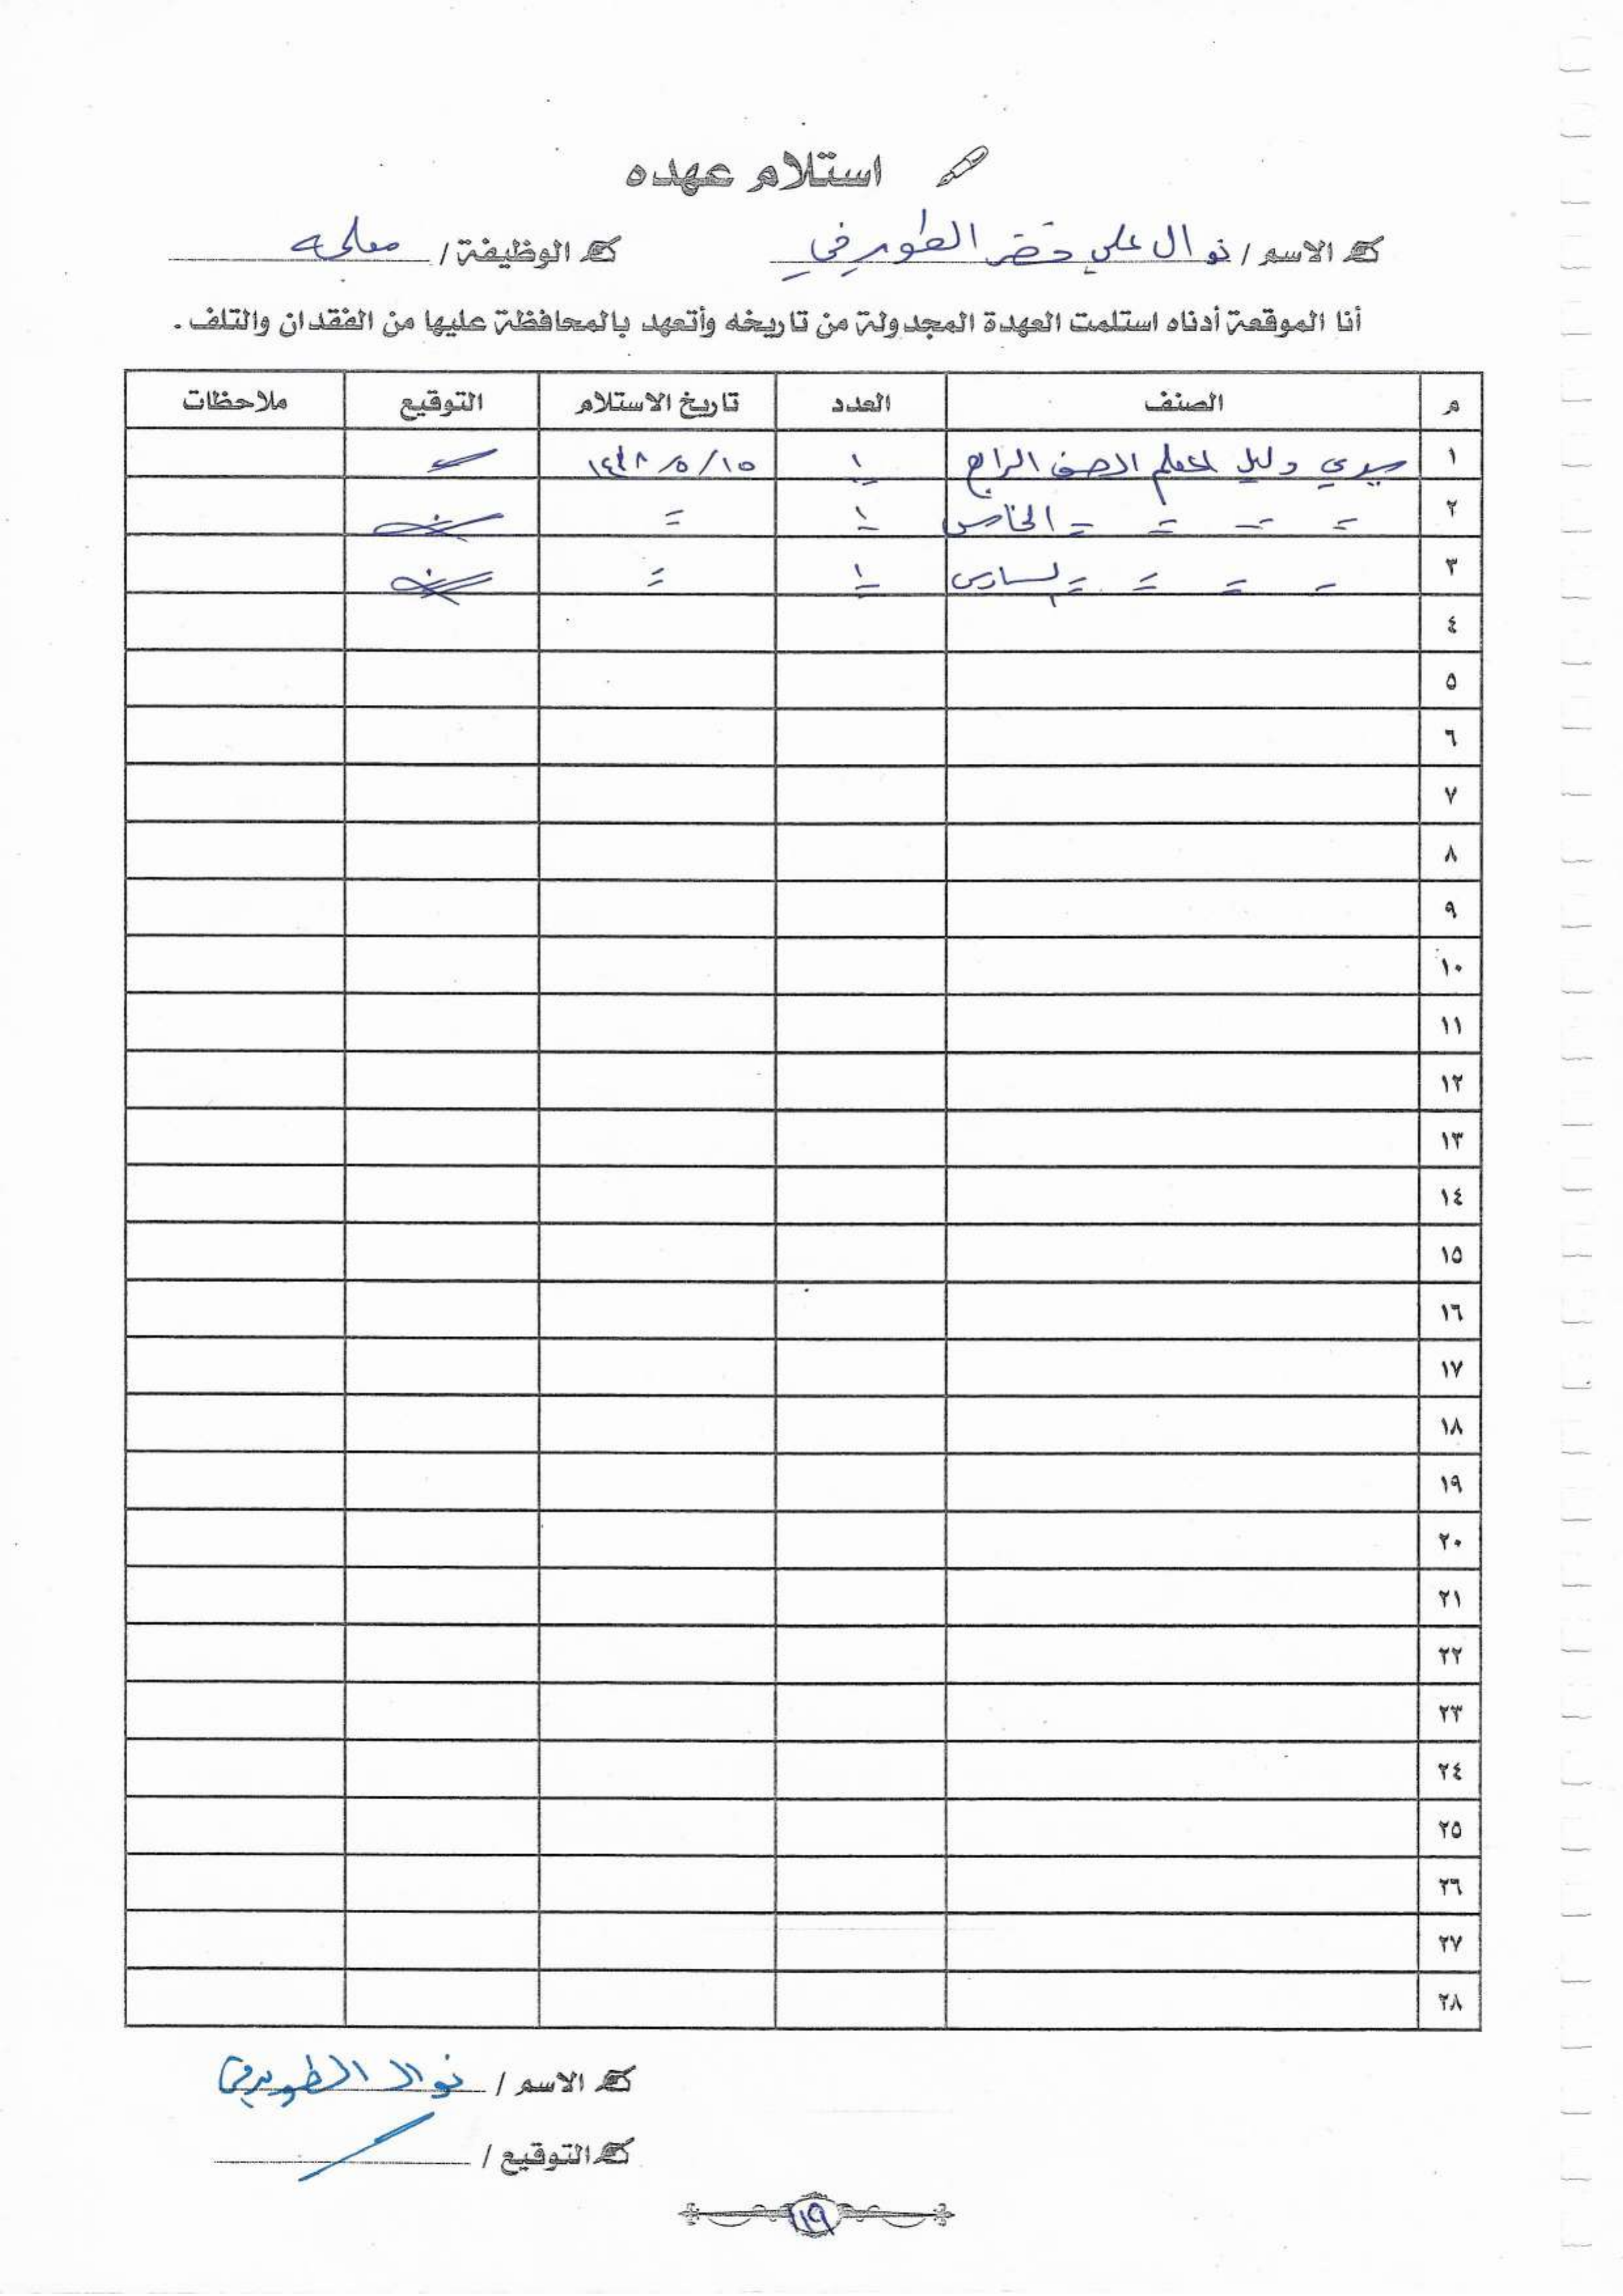 استلام عهده
الاسم / نوال علي خضر الطويرقي الوظيفة / معلمه
أنا الموقعة أدناه استلمت العهدة المجدولة من تاريخه وأتعهد بالمحافظة عليها من الفقدان والتلف .
م الصنف العدد تاريخ الاستلام التوقيع ملاحظات
١ سيدي دليل المعلم الصف الرابع ١ ١٥/٥/١٤٣٨
٢ = = = = الخامس ١ =
٣ = = = = السادس ١ =
٤
٥
٦
٧
٨
٩
١٠
١١
١٢
١٣
١٤
١٥
١٦
١٧
١٨
١٩
٢٠
٢١
٢٢
٢٣
٢٤
٢٥
٢٦
٢٧
٢٨
الاسم / نوال الطويرقي
التوقيع /